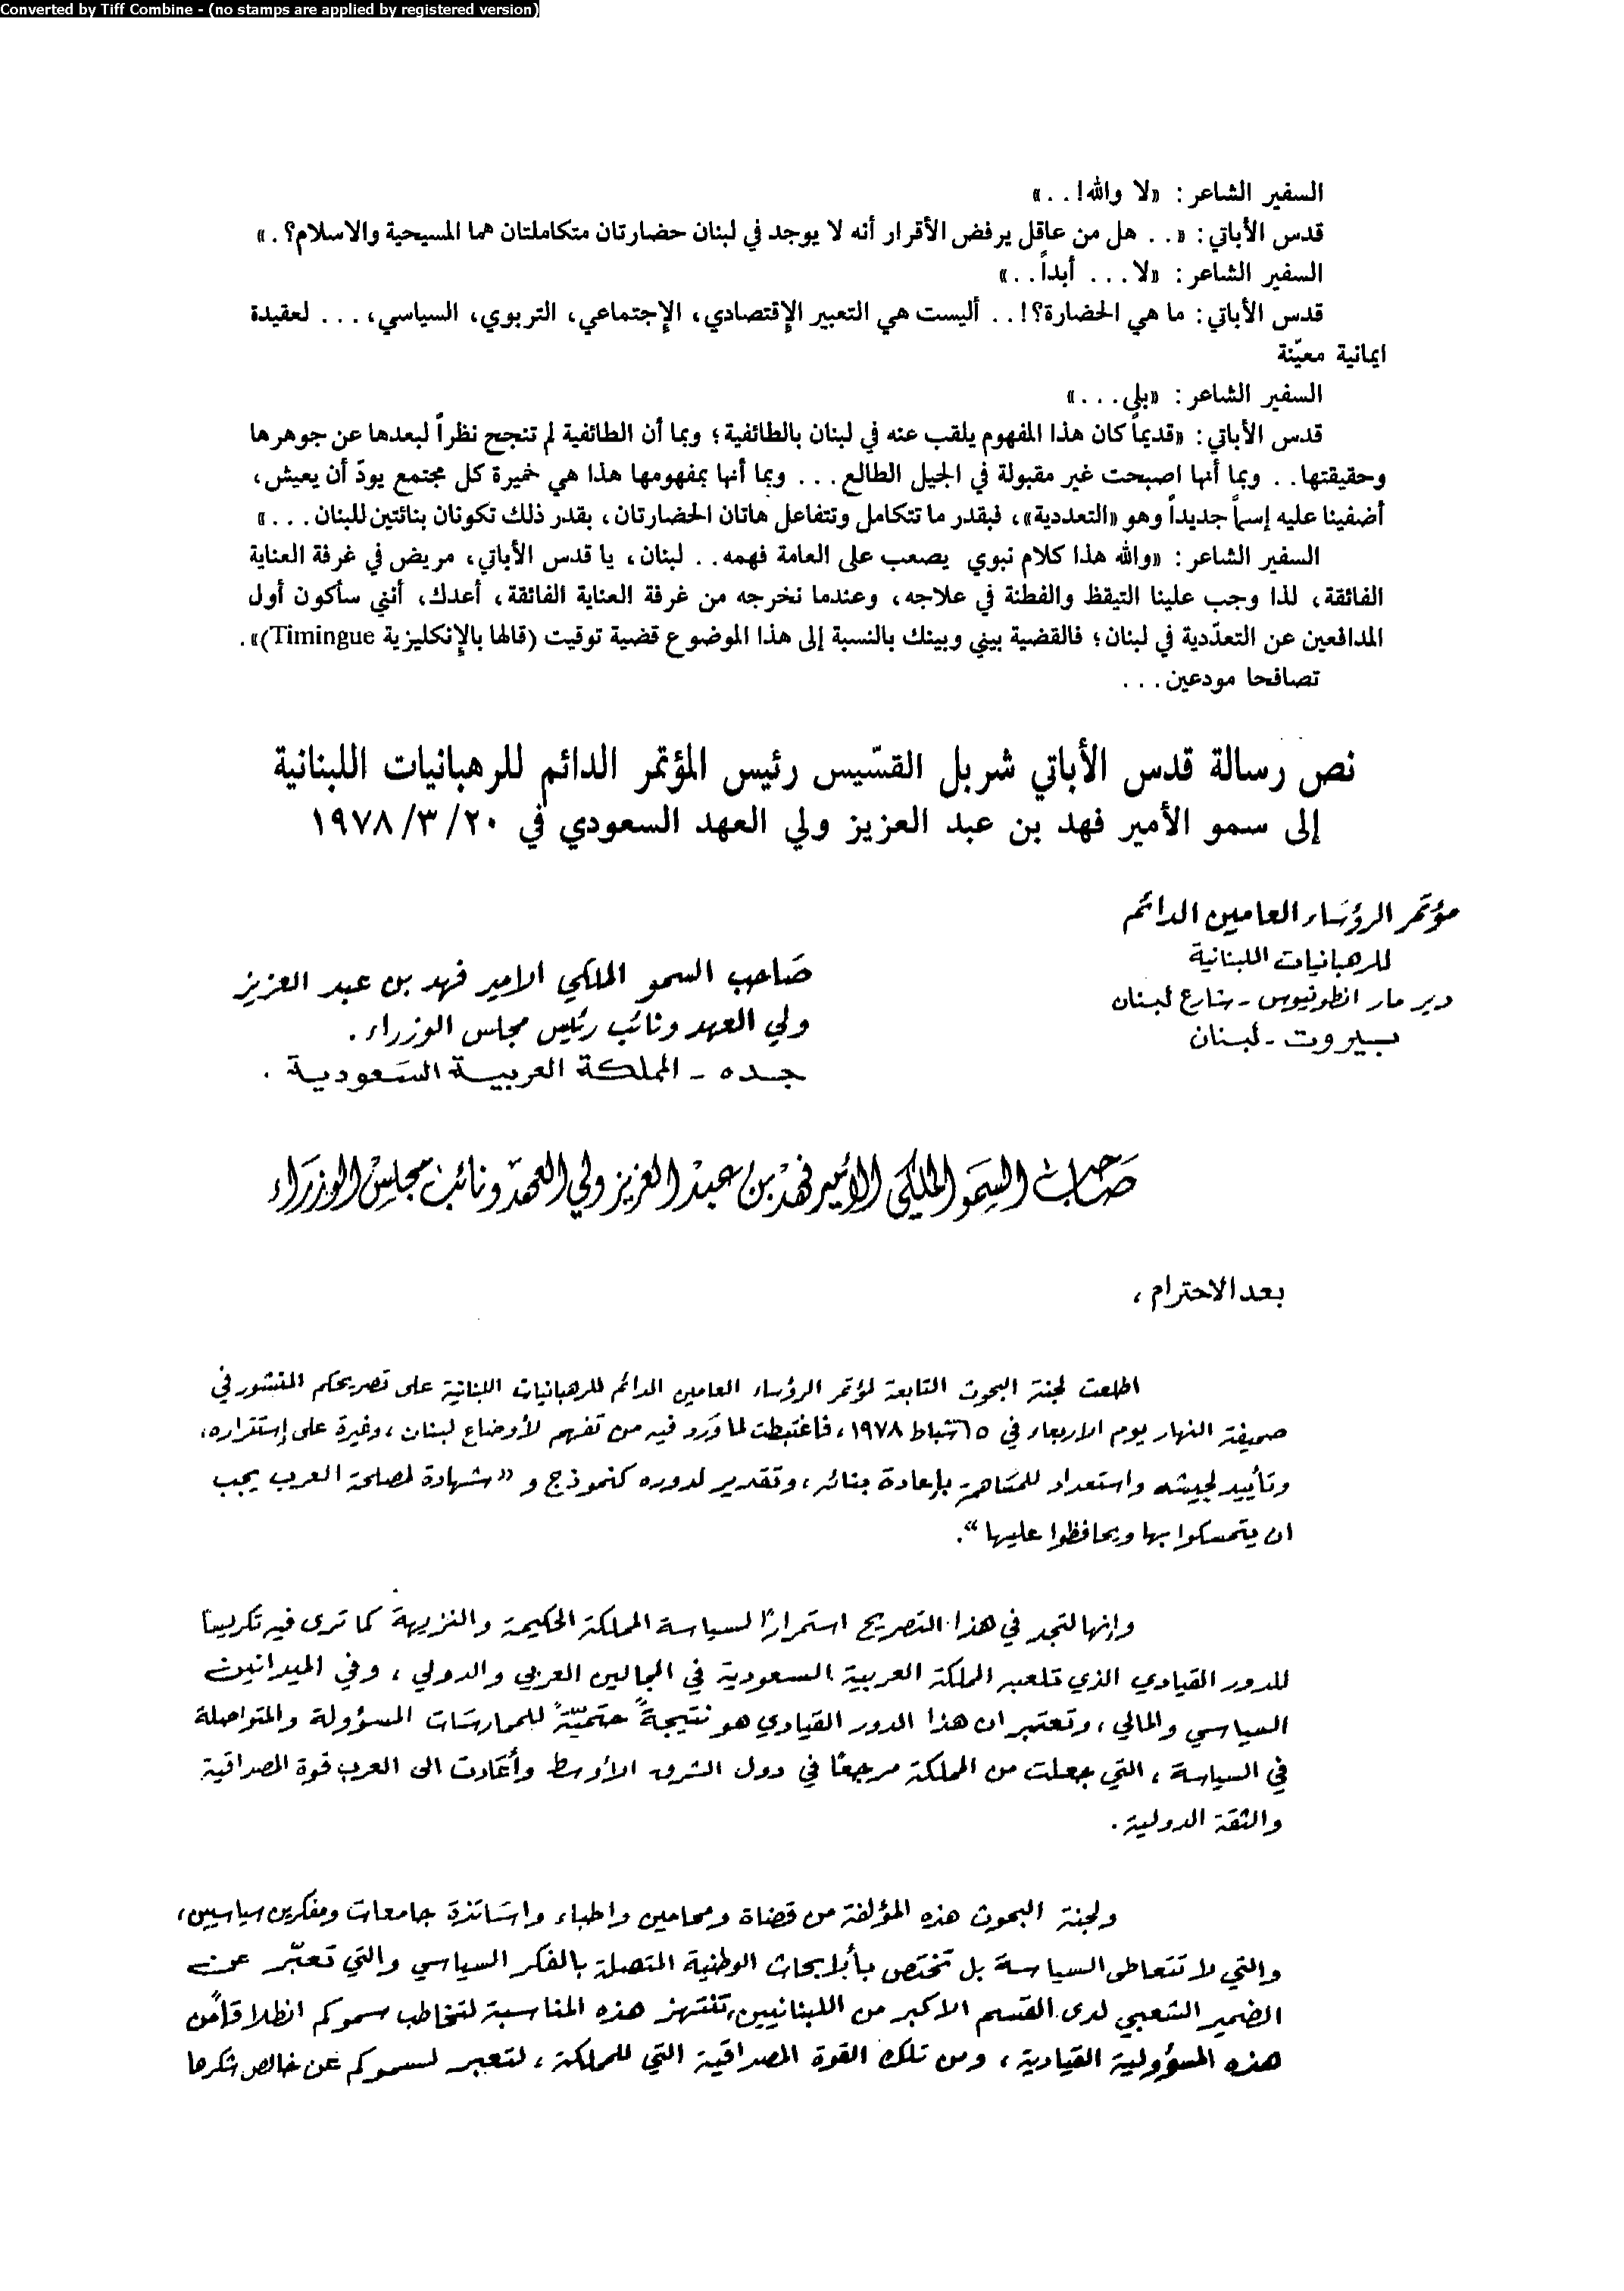 Converted by Tiff Combine - (no stamps are applied by registered version)
السفير الشاعر: «لا والله!..»
قدس الأباتي: «.. هل من عاقل يرفض الأقرار أنه لا يوجد في لبنان حضارتان متكاملتان هما المسيحية والاسلام؟.»
السفير الشاعر: «لا... أبداً..»
قدس الأباتي: ما هي الحضارة؟!.. أليست هي التعبير الإقتصادي، الإجتماعي، التربوي، السياسي،... لعقيدة
ايمانية معيّنة
السفير الشاعر: «بلى...»
قدس الأباتي: «قديماً كان هذا المفهوم يلقب عنه في لبنان بالطائفية؛ وبما أن الطائفية لم تنجح نظراً لبعدها عن جوهرها
وحقيقتها.. وبما أنها اصبحت غير مقبولة في الجيل الطالع... وبما أنها بمفهومها هذا هي خميرة كل مجتمع يودّ أن يعيش،
أضفينا عليه إسماً جديداً وهو «التعددية»، فبقدر ما تتكامل وتتفاعل هاتان الحضارتان، بقدر ذلك تكونان بنائتين للبنان...»
السفير الشاعر: «والله هذا كلام نبوي يصعب على العامة فهمه.. لبنان، يا قدس الأباتي، مريض في غرفة العناية
الفائقة، لذا وجب علينا التيقظ والفطنة في علاجه، وعندما نخرجه من غرفة العناية الفائقة، أعدك، أنني سأكون أول
المدافعين عن التعدّدية في لبنان؛ فالقضية بيني وبينك بالنسبة إلى هذا الموضوع قضية توقيت (قالها بالإنكليزية Timingue)».
تصافحا مودعين...
نص رسالة قدس الأباتي شربل القسّيس رئيس المؤتمر الدائم للرهبانيات اللبنانية
إلى سمو الأمير فهد بن عبد العزيز ولي العهد السعودي في ٢٠/٣/١٩٧٨
مؤتمر الرؤساء العامين الدائم
للرهبانيات اللبنانية
دير مار انطونيوس - شارع لبنان
بيروت - لبنان
صاحب السمو الملكي الامير فهد بن عبد العزيز
ولي العهد ونائب رئيس مجلس الوزراء.
جده - المملكة العربية السعودية.
صاحب السمو الملكي الأمير فهد بن عبد العزيز ولي العهد ونائب مجلس الوزراء
بعد الاحترام،
اطلعت لجنة البحوث التابعة لمؤتمر الرؤساء العامين الدائم للرهبانيات اللبنانية على تصريحكم المنشور في
صحيفة النهار يوم الاربعاء في ١٥ شباط ١٩٧٨، فاغتبطت لما ورد فيه من تفهم لأوضاع لبنان، وغيرة على إستقراره،
وتأييد لجيشه واستعداد للمساهمة بإعادة بنائه، وتقدير لدوره كنموذج و «شهادة لمصلحة العرب يجب
ان يتمسكوا بها ويحافظوا عليها“.
وإنها لتجد في هذا التصريح استمرارًا لسياسة المملكة الحكيمة والنزيهة كما ترى فيه تكريسًا
للدور القيادي الذي تلعبه المملكة العربية السعودية في المجالين العربي والدولي، وفي الميدانين
السياسي والمالي، وتعتبر ان هذا الدور القيادي هو نتيجةً حتميّةً للممارسات المسؤولة والمتواصلة
في السياسة، التي جعلت من المملكة مرجعًا في دول الشرق الأوسط وأعادت الى العرب قوة المصداقية
والثقة الدولية.
ولجنة البحوث هذه المؤلفة من قضاة ومحامين واطباء واساتذة جامعات ومفكرين سياسيين،
والتي لا تتعاطى السياسة بل تختص بالأبحاث الوطنية المتصلة بالفكر السياسي والتي تعبّر عن
الضمير الشعبي لدى القسم الاكبر من اللبنانيين، تنتهز هذه المناسبة لتخاطب سموكم انطلاقًا من
هذه المسؤولية القيادية، ومن تلك القوة المصداقية التي للمملكة، لتعبر لسموكم عن خالص شكرها